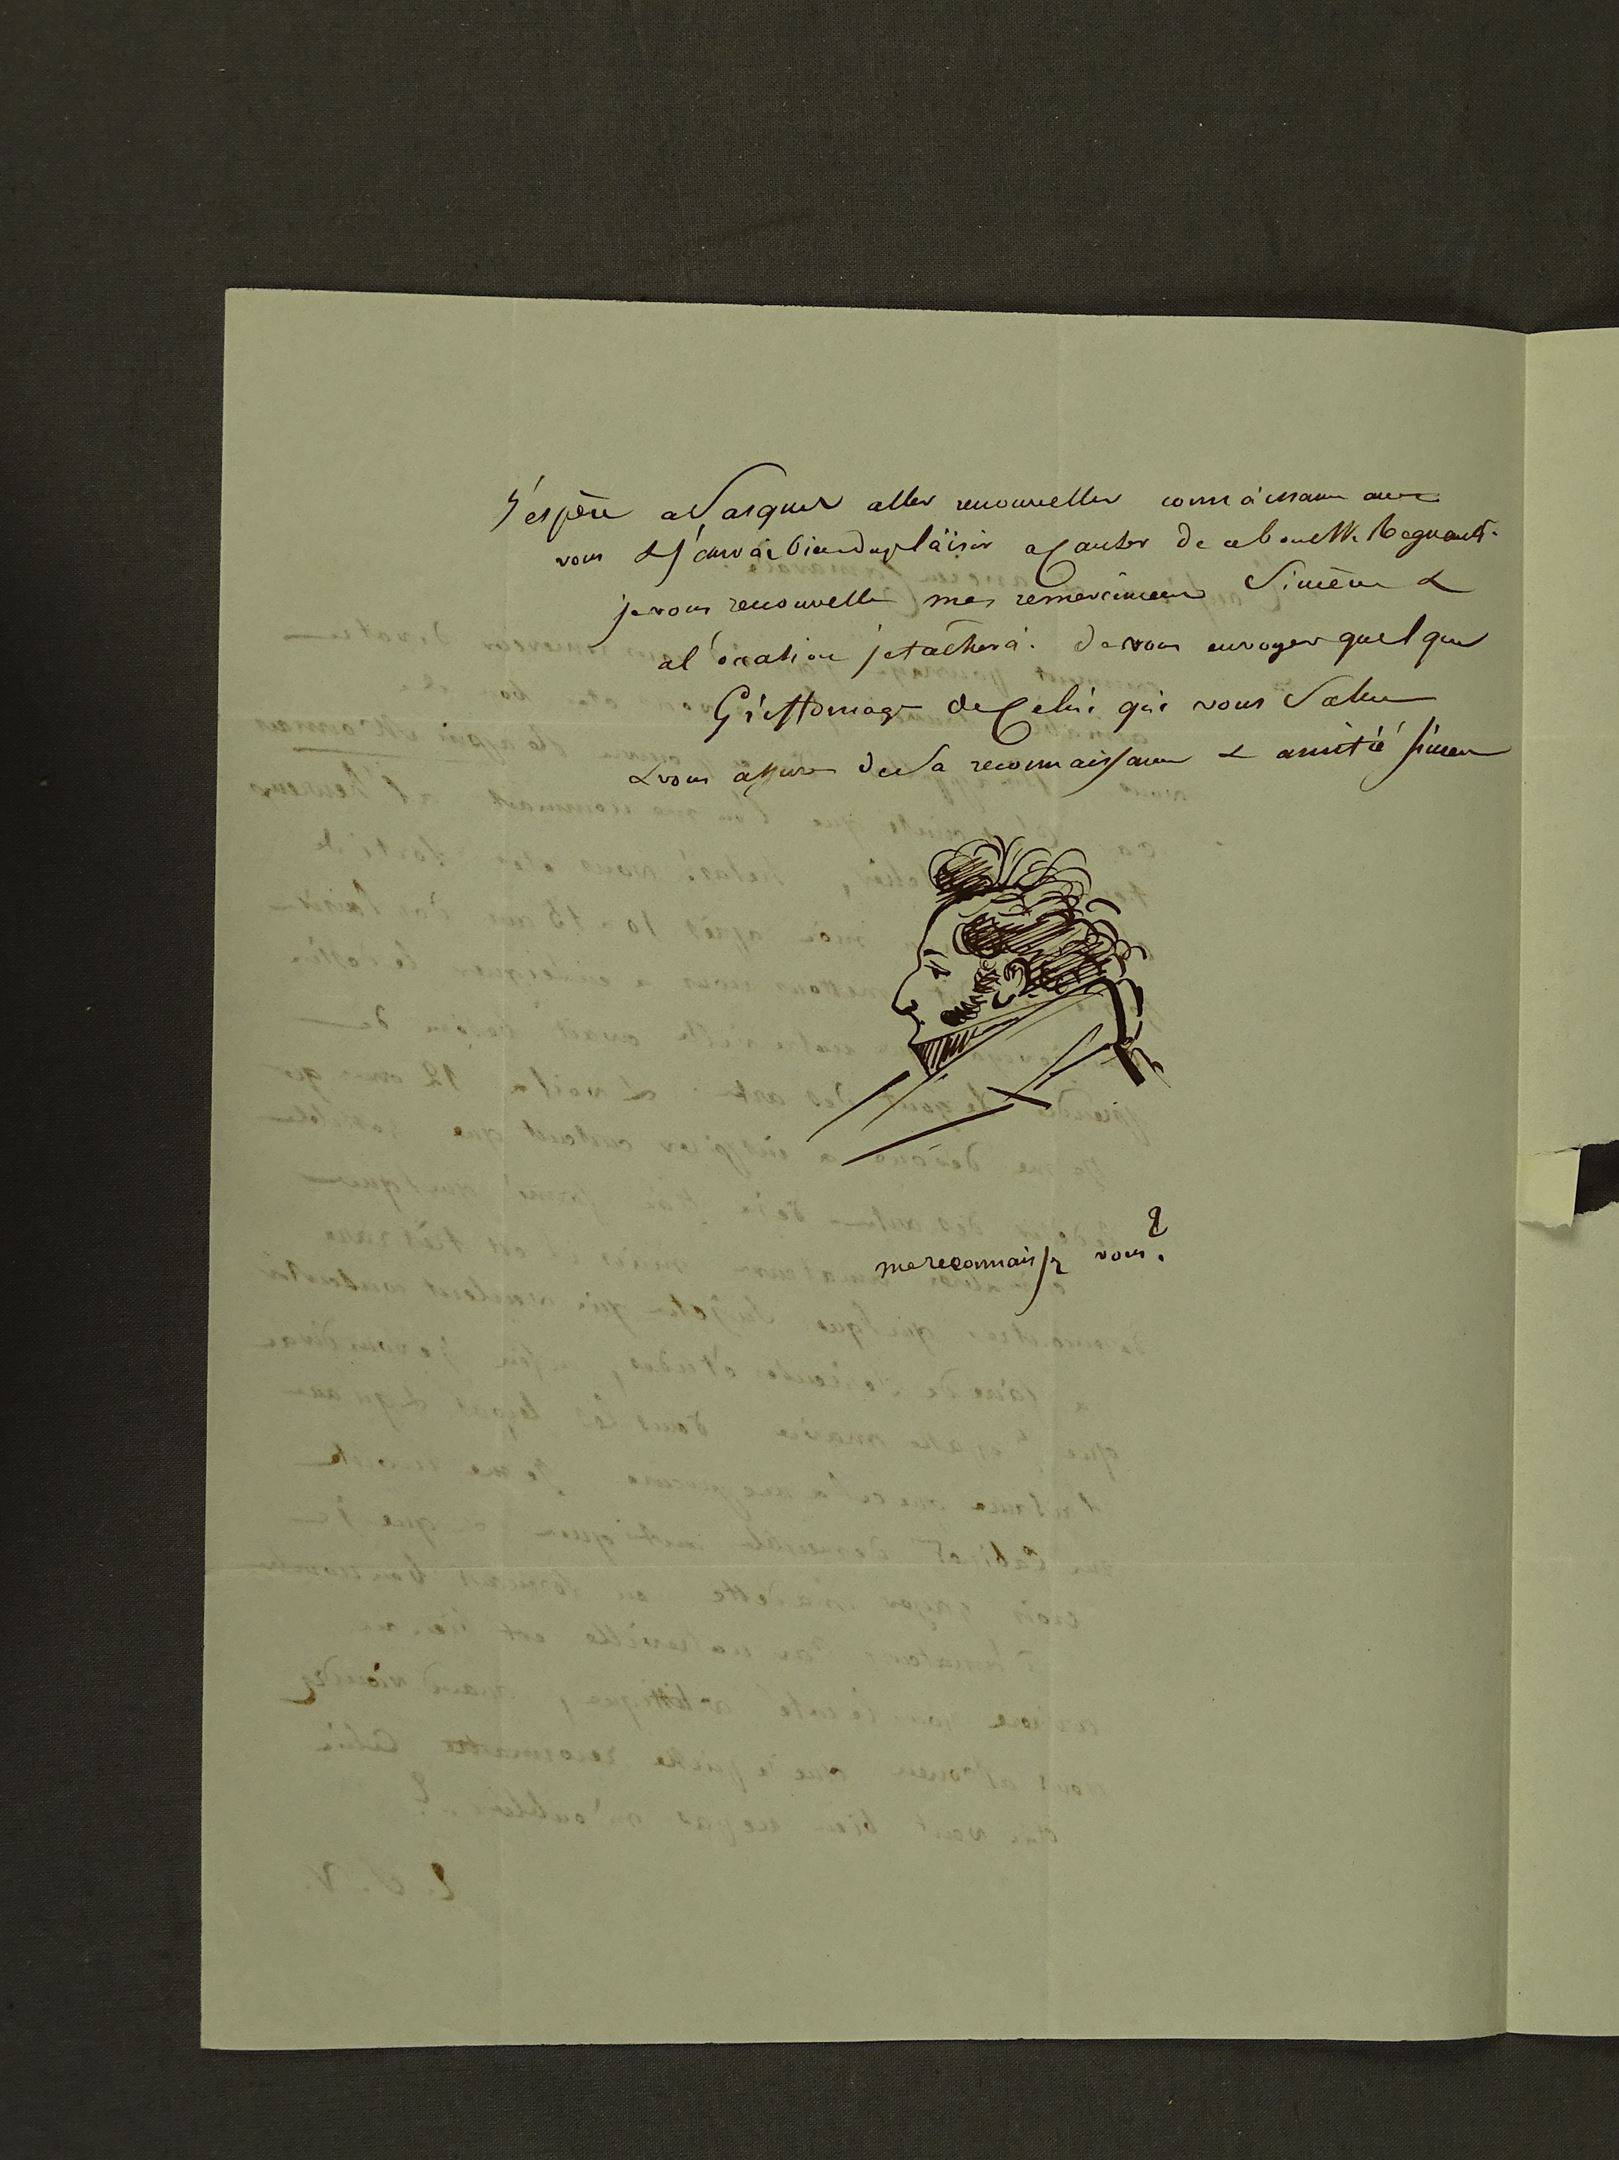 J'espère a Pasques aller renouveller connaissance avec
vous & j'aurai bien du plaisir a causer de ce bon Mr. Regnault.
je vous renouvelle mes remerciemens Sincères &
al'ocation je tacherai de vous envoyer quelque
Griffonnage de Celui qui vous Salue
& vous assure de Sa reconnaissance & amitié sincere
me reconnaissez vous?